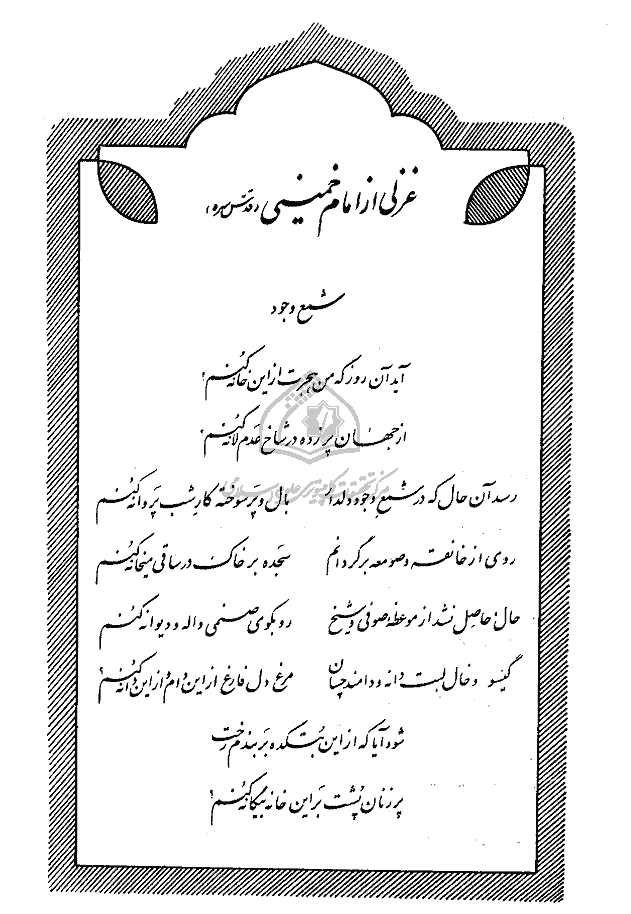 غزلی از امام خمینی (قدس سره)
شمع وجود
آید آن روز که من هجرت از این خانه کنم؟
از جهان پر زده در شاخ عدم لانه کنم؟
رسد آن حال که در شمع وجود دلدار بال و پر سوخته کار شب پروانه کنم
روی از خانقه و صومعه برگردانم سجده بر خاک در ساقی میخانه کنم
حال حاصل نشد از موعظه صوفی و شیخ رو بکوی صنمی واله و دیوانه کنم
گیسو و خال لبت دانه و دامند چسان مرغ دل فارغ از این دام و از این دانه کنم؟
شود آیا که از این بتکده بر بندم رخت
پر زنان پشت بر این خانه بیگانه کنم؟